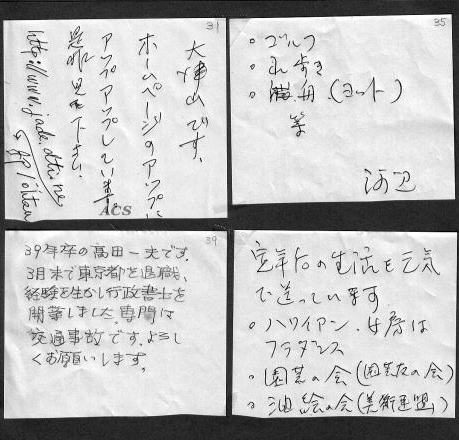 31
大津山です。
ホームページのアップに
アップアップしています。
是非見て下さい。
http://www.jade.dti.ne
ACS
35
・ゴルフ
・山歩き
・(ヨット)
等
河辺
39
39年卒の高田一夫です。
3月末で東京都を退職、
経験を生かし行政書士を
開業しました。専門は
交通事故です。よろし
くお願いします。
定年后の生活を元気
で送っています
・ハワイアン、女房は
フラダンス
・園芸の会(園芸友の会)
・油絵の会(美術連盟)